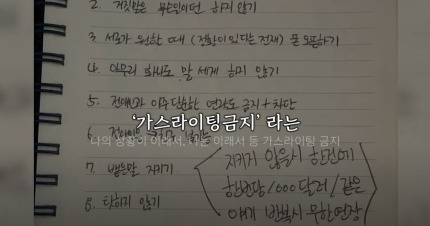 2. 거짓말은 무슨일이던 하지 않기
3. 서로가 원한 때 (정황이 있다는 전제) 폰 오픈하기
4. 아무리 화나도 말 세게 하지 않기
5. 전애인과 아주 단순한 연락도 금지 + 차단
'가스라이팅금지' 라는
6.
나의 상황이 이래서, 너는 이래서 등 가스라이팅 금지
7. 뱉은말 지키기
8. 탓하지 않기
지키지 않을시 한건에
한번당 1000달러 / 같은
얘기 반복시 무한연장